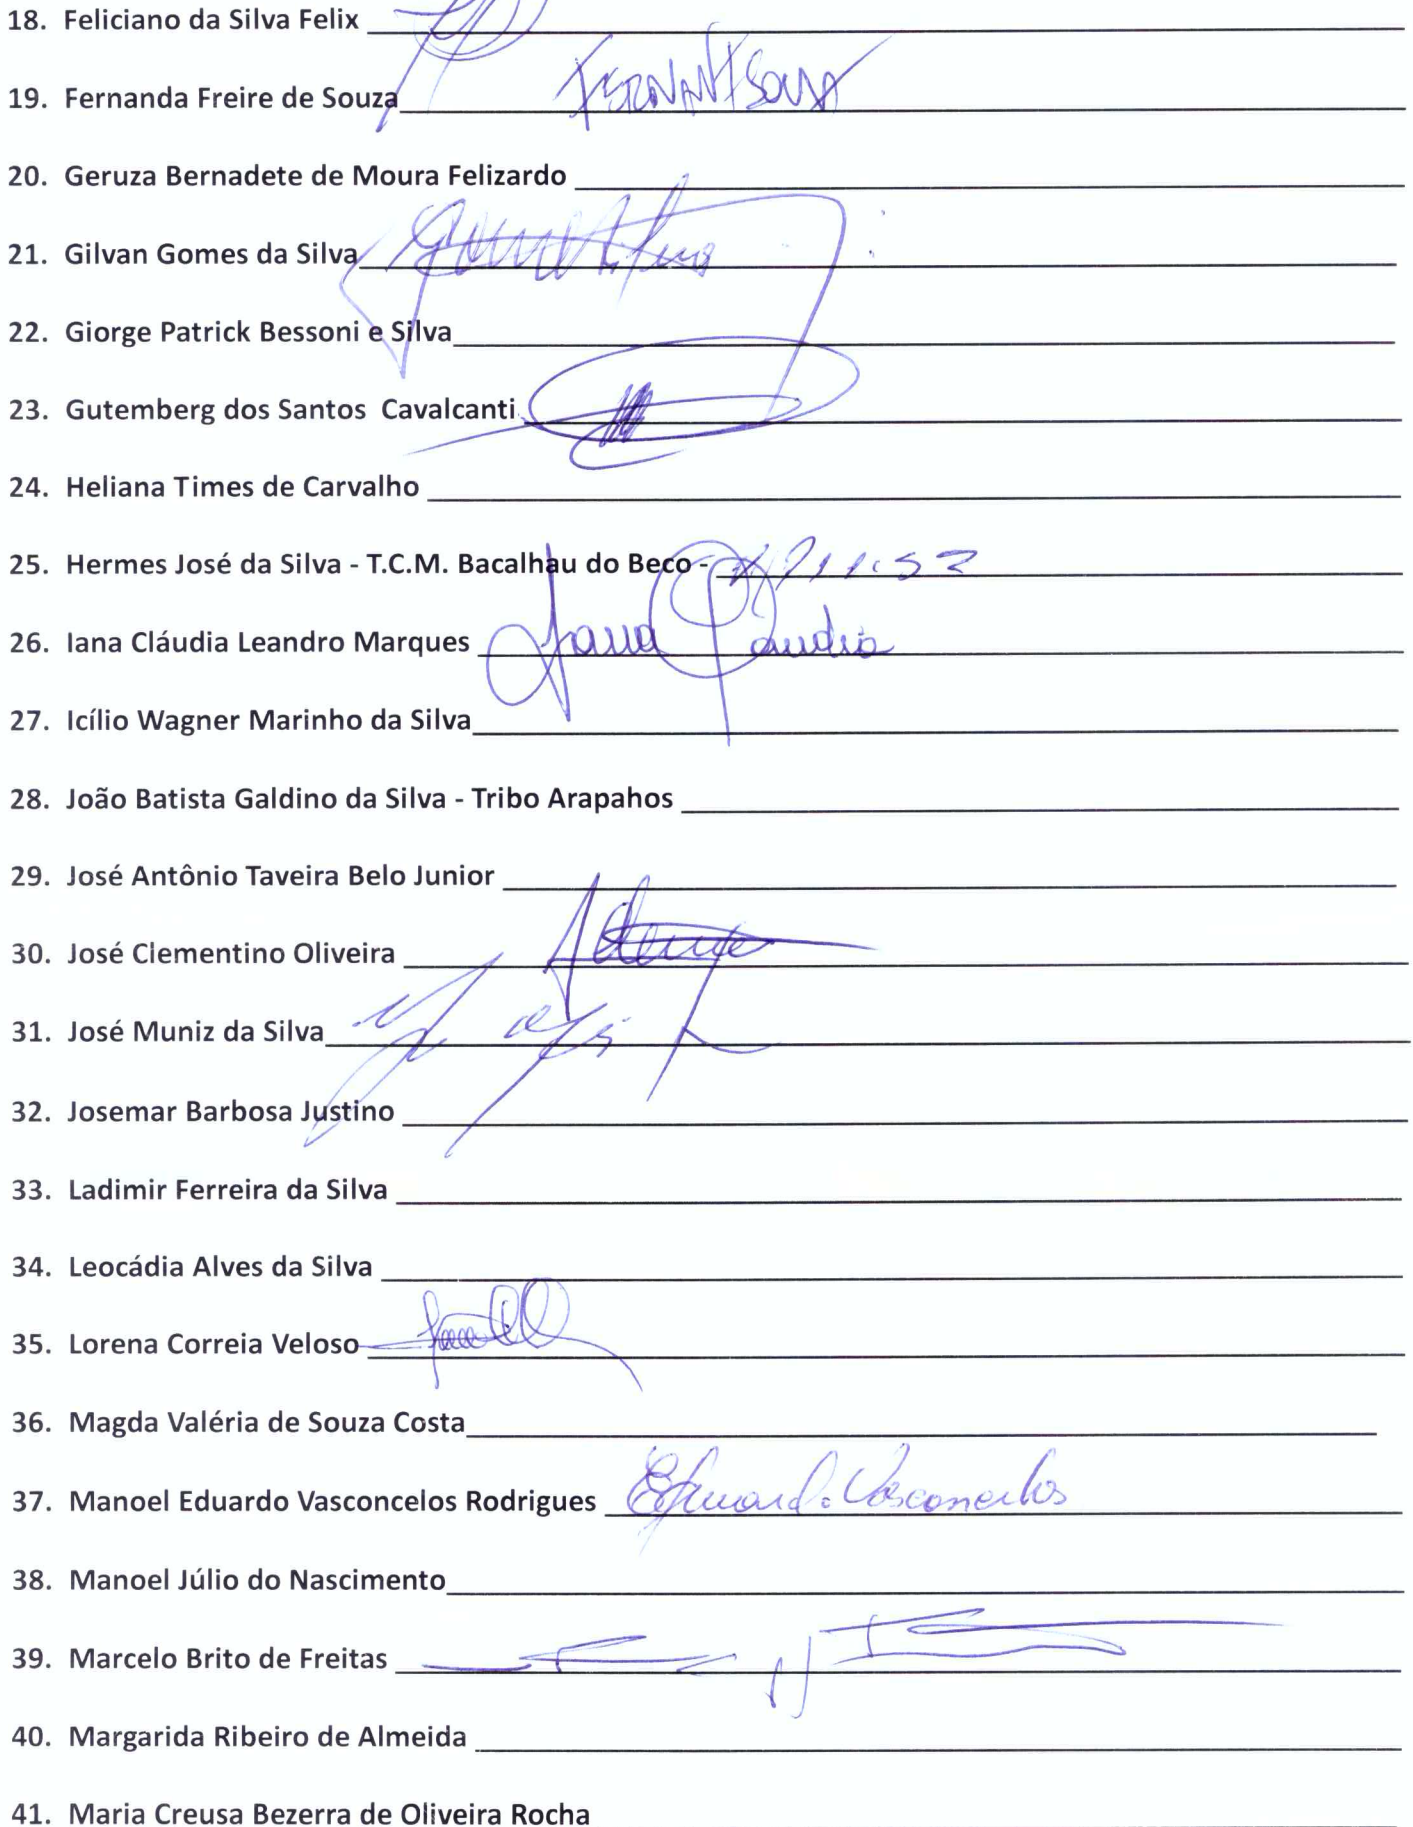 18. Feliciano da Silva Felix
19. Fernanda Freire de Souza
20. Geruza Bernadete de Moura Felizardo
21. Gilvan Gomes da Silva
22. Giorge Patrick Bessoni e Silva
23. Gutemberg dos Santos Cavalcanti
24. Heliana Times de Carvalho
25. Hermes José da Silva - T.C.M. Bacalhau do Beco -
26. Iana Cláudia Leandro Marques Iana Claudia
27. Icílio Wagner Marinho da Silva
28. João Batista Galdino da Silva - Tribo Arapahos
29. José Antônio Taveira Belo Junior
30. José Clementino Oliveira
31. José Muniz da Silva
32. Josemar Barbosa Justino
33. Ladimir Ferreira da Silva
34. Leocádia Alves da Silva
35. Lorena Correia Veloso
36. Magda Valéria de Souza Costa
37. Manoel Eduardo Vasconcelos Rodrigues Eduardo Vasconcelos
38. Manoel Júlio do Nascimento
39. Marcelo Brito de Freitas
40. Margarida Ribeiro de Almeida
41. Maria Creusa Bezerra de Oliveira Rocha